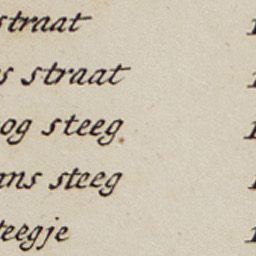 straat
s straat
og steeg
ans steeg
teegje